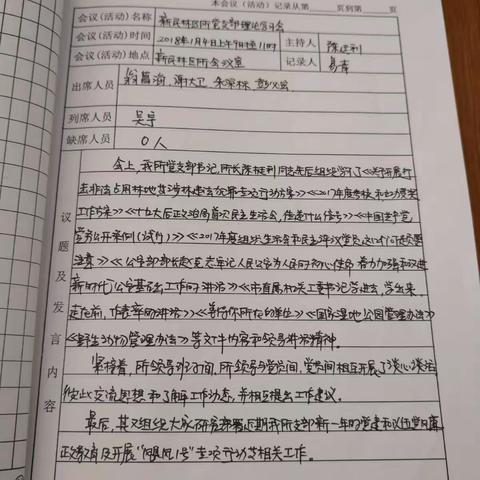 本会议（活动）记录从第 页到第 页
会议（活动）名称 新民林区所党支部理论学习会
会议（活动）时间 2018年1月4日上午9时至11时 主持人 陈桂利
会议（活动）地点 新民林区所会议室 记录人 易青
出席人员 翁昌渝、谢大卫、朱梁栋、彭仪
列席人员 吴宇
缺席人员 0人
议题及发言内容
会上，我所党支部书记、所长陈桂利同志先后组织学习了《关于开展打
击非法占用林地等涉林违法犯罪专项行动方案》《2017年度考核和功奖
工作方案》《十九大后政治局首次民主生活会，传递什么信号》《中国共产党
党务公开条例（试行）》《2017年度组织生活会和民主评议党员，这些问题要
注意》《公安部部长赵克志牢记人民公安为人民的初心使命 着力加强和改进
新时代公安基础工作的讲话》《市直属机关工委书记学进去，学出来，
走在前，作表率的讲话》《单位你所在的单位》《国家湿地公园管理办法》
《野生动物管理办法》等文件内容和领导讲话精神。
紧接着，所领导班子间，所领导与党员间，党员间相互开展了谈心谈话
彼此交流思想和了解工作动态，并相互提出工作建议。
最后，其又组织大家研究部署近期我所支部新一年的党建和议党风廉
政教育及开展“飓风1号”专项行动等相关工作。